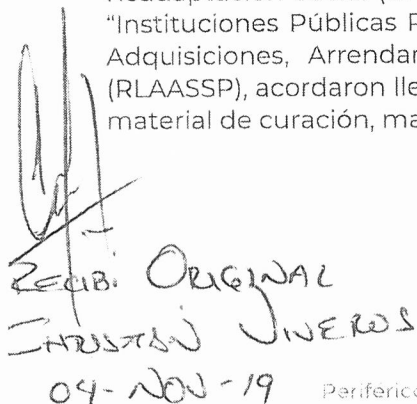 “Instituciones Públicas P
Adquisiciones, Arrendar
(RLAASSP), acordaron lle
material de curación, ma
RECIBI ORIGINAL
CHRISTIAN VIVEROS
04-NOV-19
Periférico